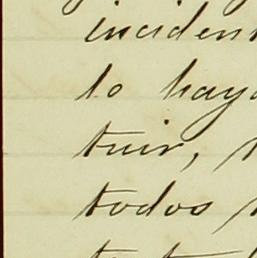 inciden
lo hay
tuir,
todos